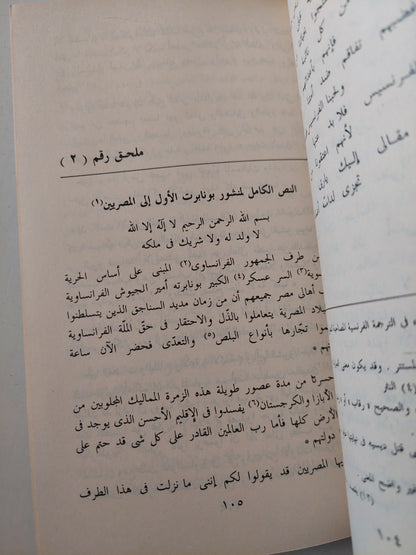 ملحق رقم ( ٢ )
النص الكامل لمنشور بونابرت الأول إلى المصريين(١)
بسم الله الرحمن الرحيم لا إله إلا الله
لا ولد له ولا شريك في ملكه
ن طرف الجمهور الفرنساوى(٢) المبنى على أساس الحرية
وية(٣) السر عسكر(٤) الكبير بونابرته أمير الجيوش الفرنساوية
أهالى مصر جميعهم أن من زمان مديد السناجق الذين يتسلطنوا
لاد المصرية يتعاملوا بالذل والاحتقار في حق الملّة الفرنساوية
موا تجّارها بأنواع البلص(٥) والتعدّى فحضر الآن ساعة
تهم *
حسرتا من مدة عصور طويلة هذه الزمرة المماليك المجلوبين من
الأبازا والكرجستان(٦) يفسدوا في الإقليم الأحسن الذى يوجد في
الأرض كلها فأما رب العالمين القادر على كل شى قد حتم على
دولتهم *
يها المصريين قد يقولوا لكم إننى ما نزلت في هذا الطرف
١٠٥
من كل
فإنهم
تفاقم
الفرنسيس
فلا بد
لأنهم
مقالى إليك
تجزى
ه في الترجمة الفرنسية
وقد يكون
(٤) التار
والصحيح
قتل
المعنى
١٠٤